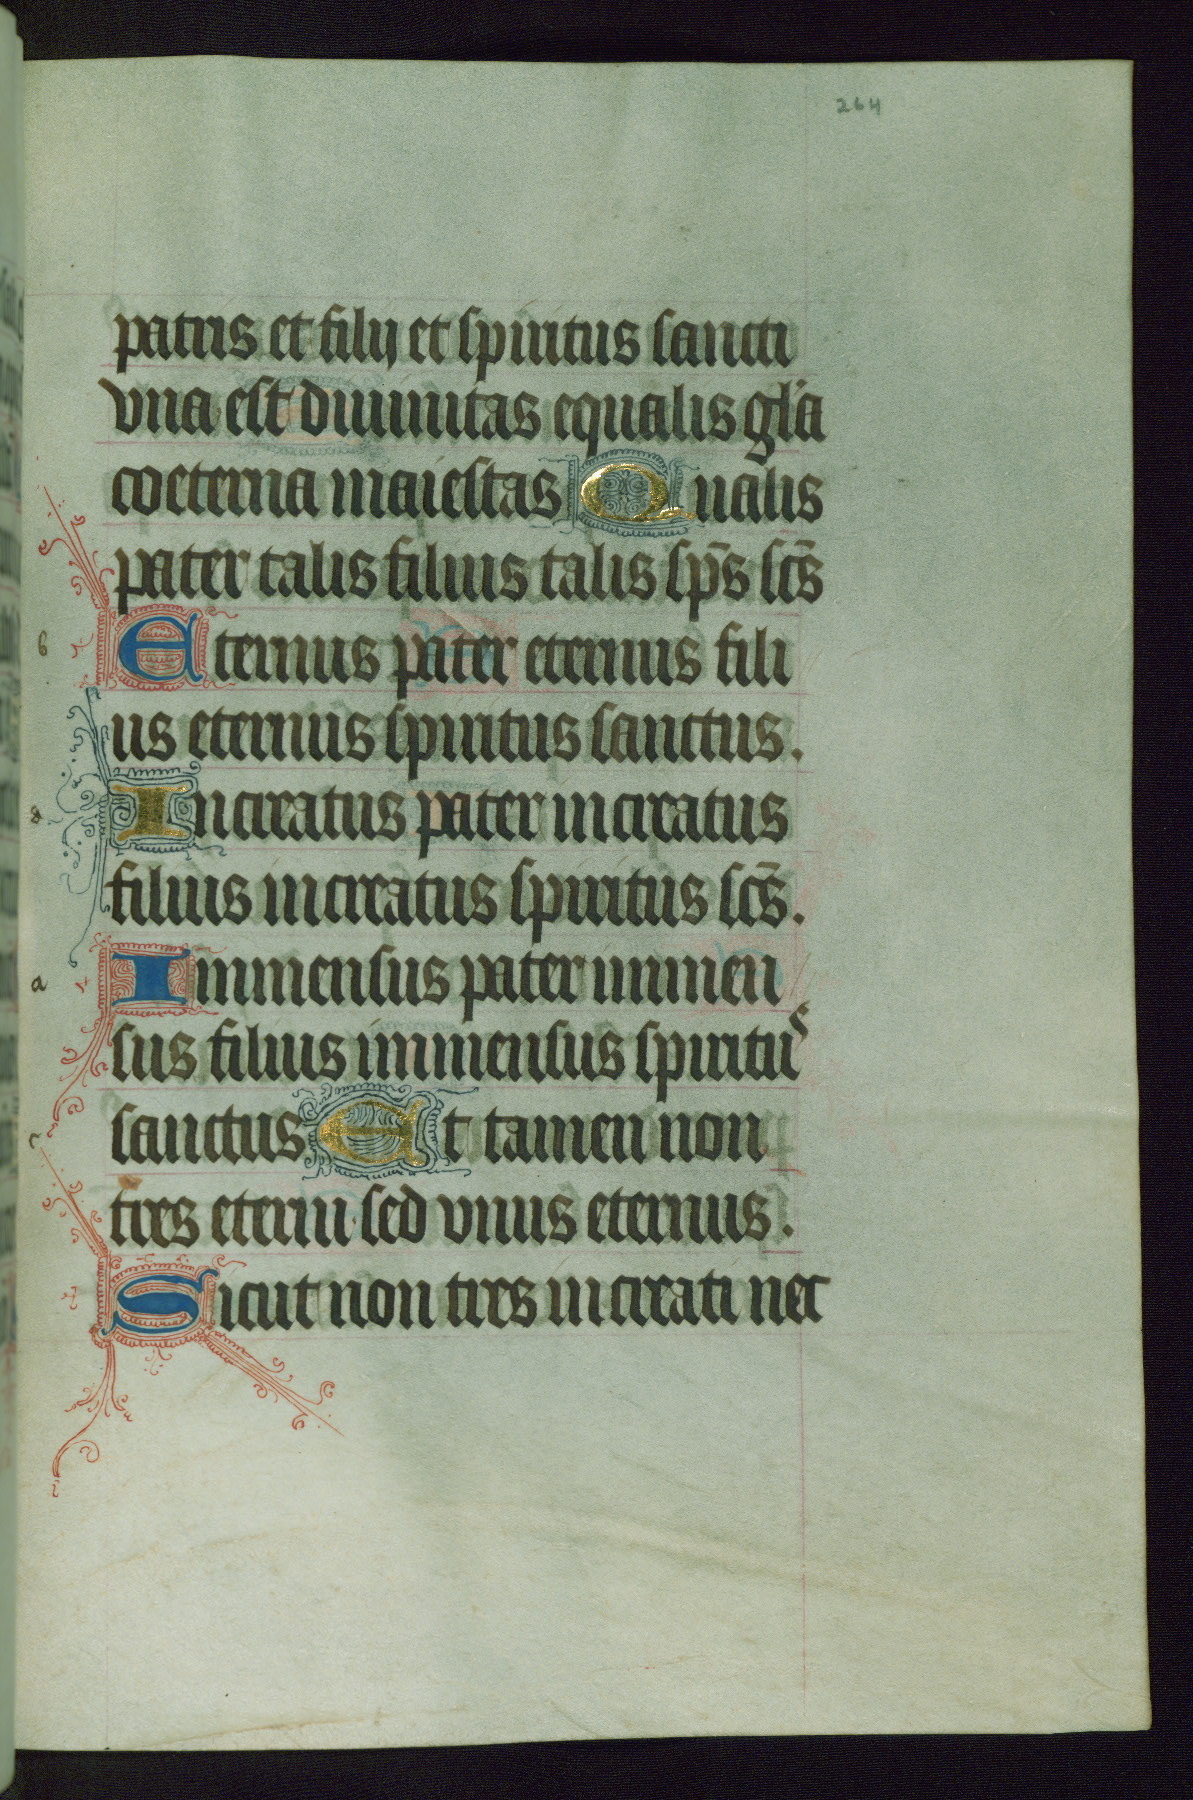 264
patris et filij et spiritus sancti
vna est diuinitas equalis gl'a
coeterna maiestas Qualis
pater talis filius talis sp̄s sc̄s
Eternus pater eternus fili
us eternus spiritus sanctus.
Increatus pater increatus
filius increatus spiritus sc̄s.
Immensus pater immen
sus filius immensus spiritus
sanctus Et tamen non
tres eterni sed vnus eternus.
Sicut non tres increati nec